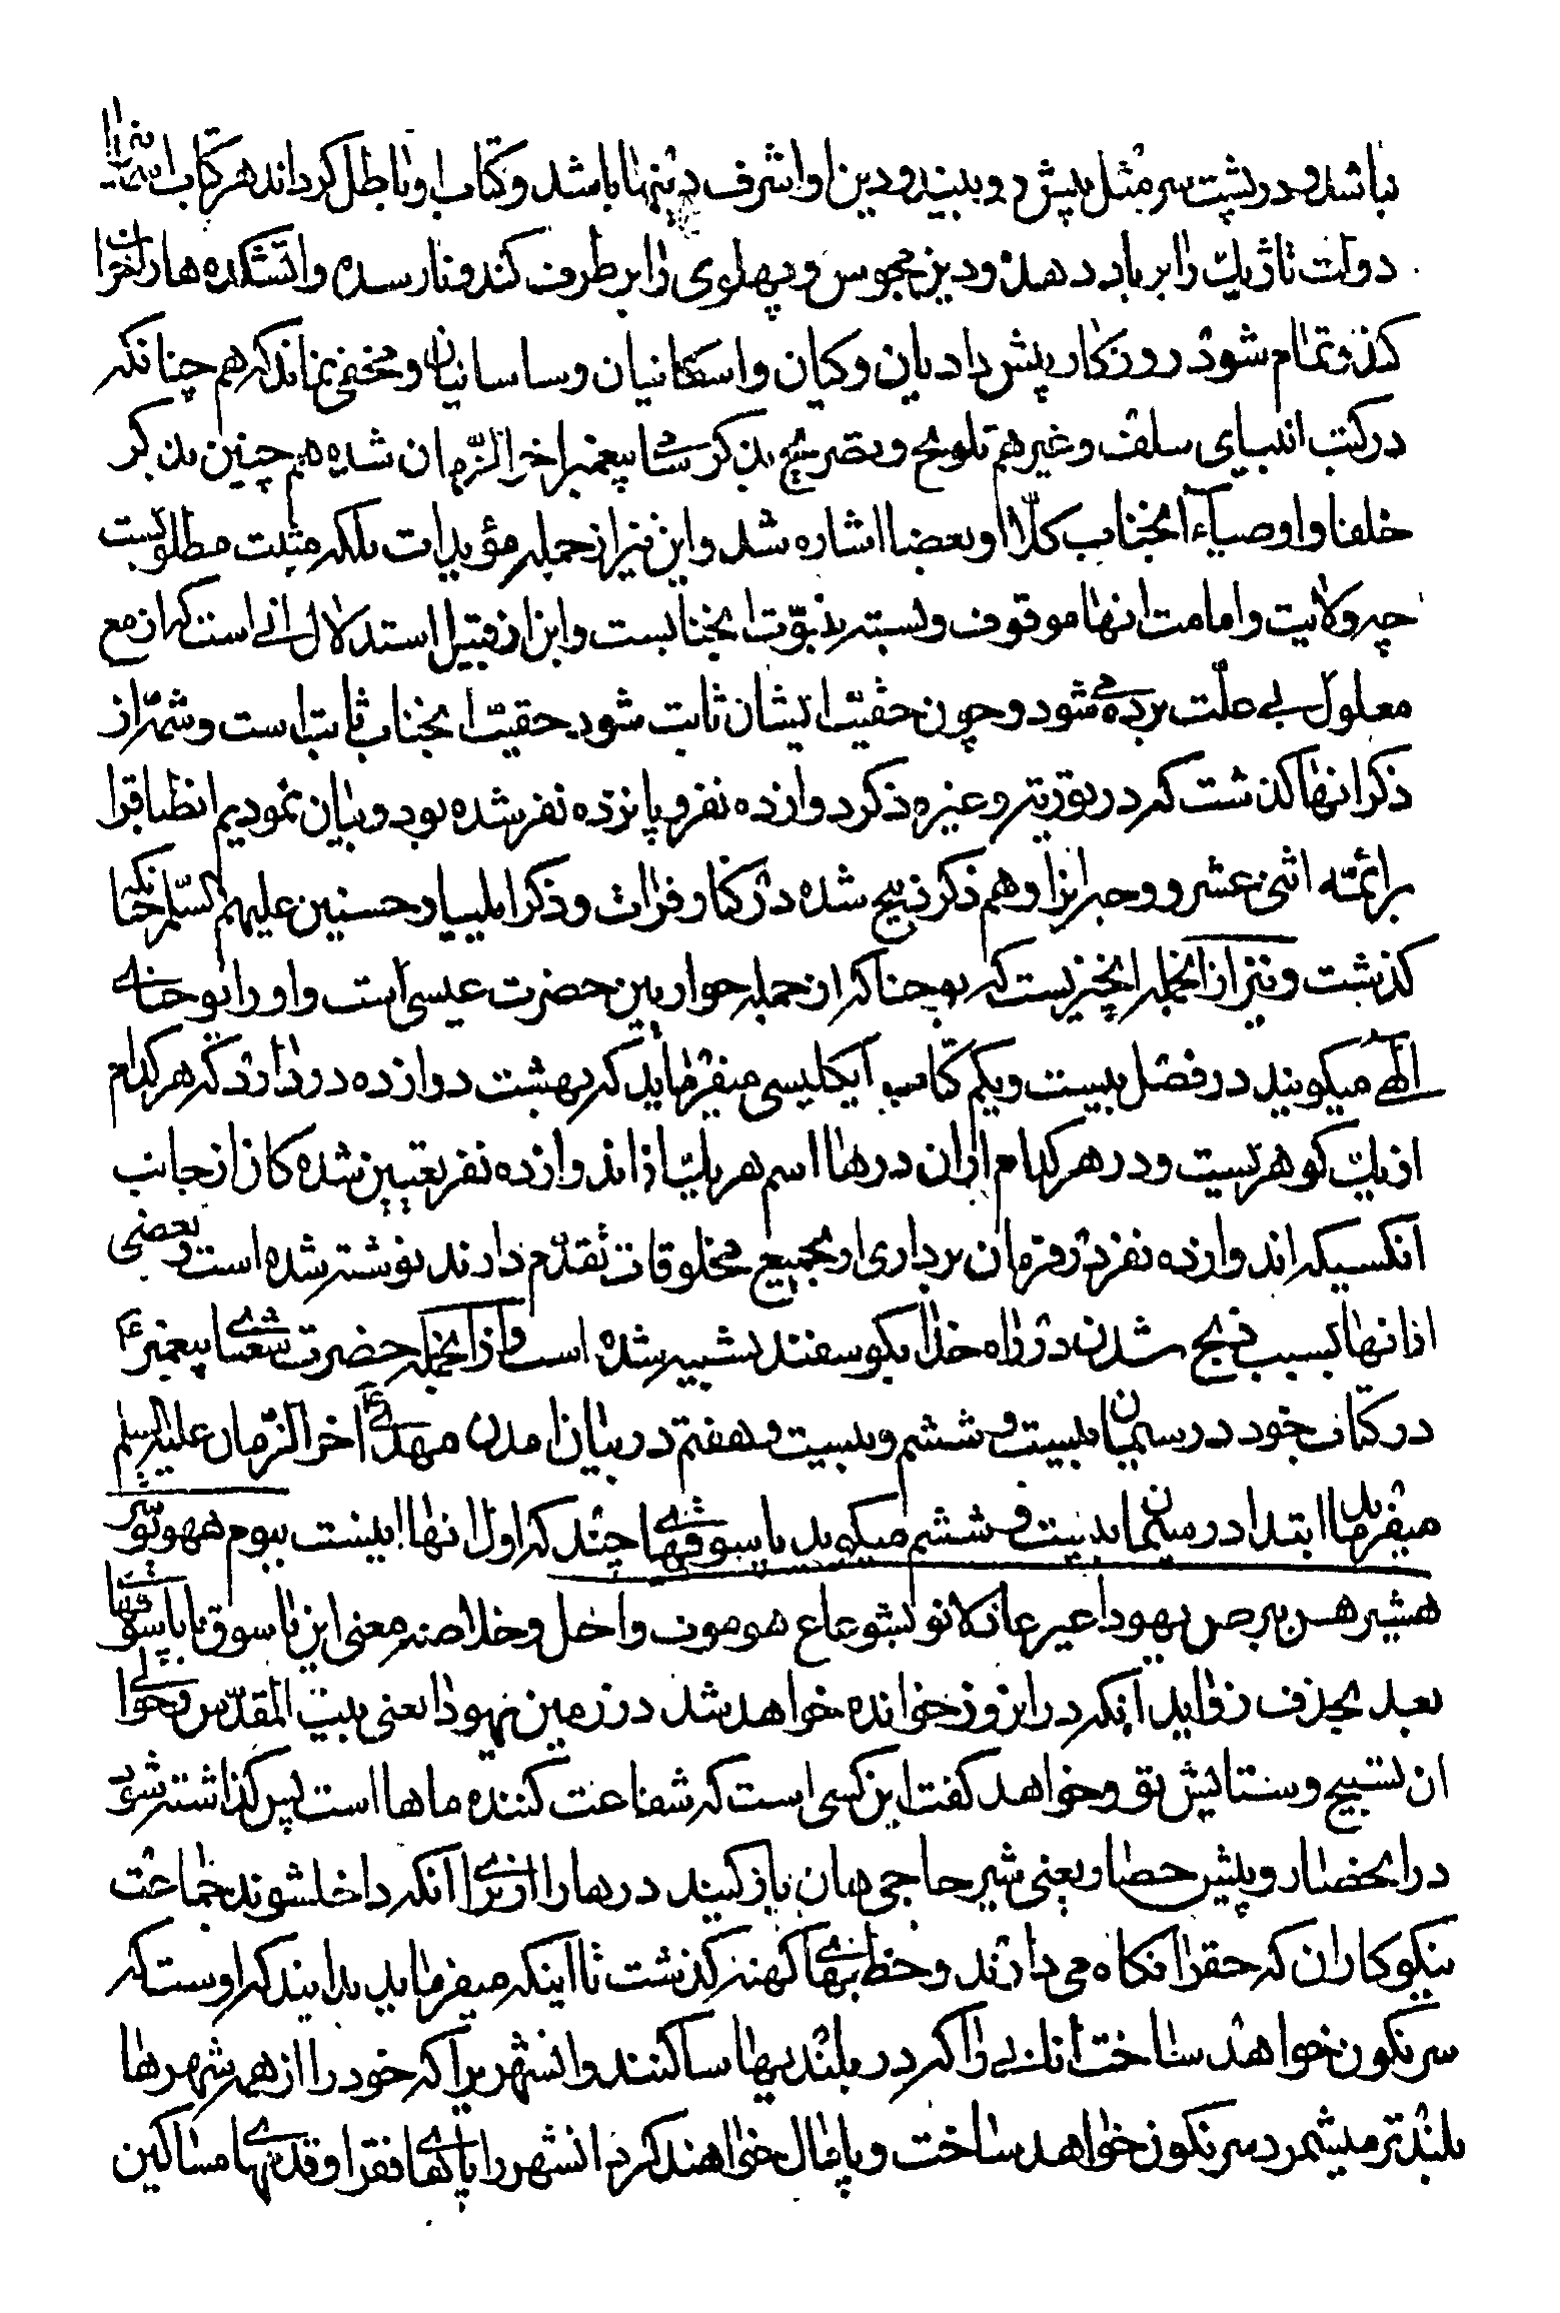 نباشد و در پشت سر مثل پیش رو ببیند و دین او اشرف دینها باشد و کتاب او باطل کرداند هر کتاب اسمانی را
دولت تازیک را بر باد دهد و دین مجوس و پهلوی را بر طرف کند و نار سده و اتشکده ها را خراب
کند و تمام شود روزکار پیش دادیان و کیان و اشکانیان و ساسانیان و مخفی نماند که هم چنانکه
در کتب انبیای سلف و غیر هم تلویح و تصریح بذکر پیغمبر اخر الزّمان شده هم چنین بذکر
خلفا و اوصیاء انجناب کلّا او بعضا اشاره شد و این نیز از جمله مؤیدات بلکه مثبت مطلوبست
چه ولایت و امامت انها موقوف و بسته بنبوّت انجنابست و این از قبیل استدلال انی است که از مع
معلول پی بعلّت برده می شود و چون حقیّت ایشان ثابت شود حقیّت انجناب ثابت است و شمّه از
ذکر انها کذشت که در توریته و غیره ذکر دوازده نفر و پانزده نفر شده بود و بیان نمودیم انطباق را
بر ائمّه اثنی عشر و هم ذکر ذبیح شده در کنار فرات و ذکر ایلیا و حسنین علیهم السّلام چنانکه
کذشت و نیز از انجمله انچیزیست که یوحنا که از جمله حواریین حضرت عیسی است و او را یوحنای
الهی میکویند در فصل بیست و یکم کتاب اپکلپسی میفرماید که بهشت دوازده در دارد که هر کدام
از یک کوهریست و در هر کدام از ان درها اسم هر یک از اندوازده نفر تعیین شده کان از جانب
انکسیکه اندوازده نفر در فرمان برداری او بجمیع مخلوقات تقدّم دارند نوشته شده است و بعضی
از انها بسبب ذبح شدن در راه خدا بکوسفند تشبیه شده است و از انجمله حضرت شعیای پیغمبر ع
در کتاب خود در سیمان بیست و ششم و بیست و هفتم در بیان امدن مهدی اخر الزّمان علیه السلم
میفرماید ابتدا در سیمان بیست و ششم میکوید پاسوقهای چند که اول انها اینست بیوم ههو یوشر
هشیر هزه بیرص یهودا عیر عاز لانو یشوعاع هوموت واخل و خلاصه معنی این پاسوق با پاسوقهای
بعد بحذف زواید انکه در انروز خوانده خواهد شد در زمین یهودا یعنی بیت المقدّس و حوالی
ان تسبیح و ستایش نو و خواهد کفت این کسی است که شفاعت کننده ماها است پس کذاشته شود
در انحصار و پیش حصار یعنی شیر حاجی هان باز کنید درها را از برای انکه داخلشوند جماعت
نیکوکاران که حق را نکاه می دارند و خطابهای کهنه کذشت تا اینکه میفرماید بدانید که اوست که
سرنکون خواهد ساخت انانی را که در بلندیها ساکنند و انشهریرا که خود را از همه شهرها
بلندتر میشمرد سرنکون خواهد ساخت و پامال خواهند کرد انشهر را پاهای فقرا و قدمهای مساکین